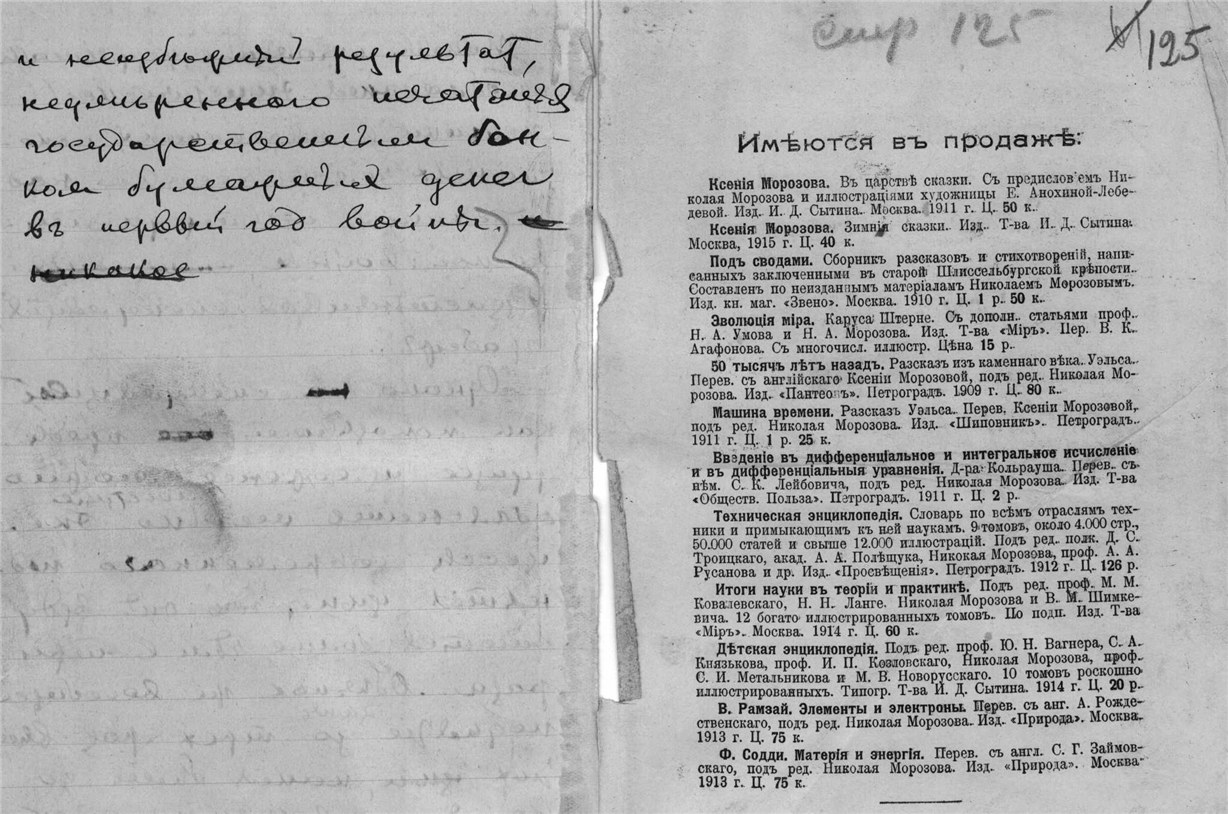 и неизбежный результат,
неумеренного печатанія
государственным бан-
ком бумажных денег
въ первый год войны. и
никакое
стр 125
125
Имѣются въ продажѣ:
Ксенія Морозова. Въ царствѣ сказки. Съ предислов'ем Ни-
колая Морозова и иллюстраціями художницы Е. Анохиной-Лебе-
девой. Изд. И. Д. Сытина. Москва. 1911 г. Ц. 50 к.
Ксенія Морозова. Зимнія сказки. Изд. Т-ва И. Д. Сытина.
Москва, 1915 г. Ц. 40 к.
Подъ сводами. Сборник разсказовъ и стихотвореній, напи-
санныхъ заключенными въ старой Шлиссельбургской крѣпости.
Составлен по неизданным матеріалам Николаем Морозовымъ.
Изд. кн. маг. «Звено». Москва. 1910 г. Ц. 1 р. 50 к.
Эволюція міра. Каруса Штерне. Съ дополн. статьями проф.
Н. А. Умова и Н. А. Морозова. Изд. Т-ва «Міръ». Пер. В. К.
Агафонова. Съ многочисл. иллюстр. Цѣна 15 р.
50 тысячъ лѣтъ назадъ. Разсказ из каменнаго вѣка. Уэльса.
Перев. съ англійскаго Ксеніи Морозовой, подъ ред. Николая Мо-
розова. Изд. «Пантеонъ». Петроградъ. 1909 г. Ц. 80 к.
Машина времени. Разсказ Уэльса. Перев. Ксеніи Морозовой,
подъ ред. Николая Морозова. Изд. «Шиповникъ». Петроградъ.
1911 г. Ц. 1 р. 25 к.
Введеніе въ дифференціальное и интегральное исчисленіе
и въ дифференціальныя уравненія. Д-ра Кольрауша. Перев. съ
нѣм. С. К. Лейбовича, подъ ред. Николая Морозова. Изд. Т-ва
«Обществ. Польза». Петроградъ. 1911 г. Ц. 2 р.
Техническая энциклопедія. Словарь по всѣм отраслям тех-
ники и примыкающим къ ней наукам. 9 томов, около 4.000 стр.,
50.000 статей и свыше 12.000 иллюстрацій. Подъ ред. полк. Д. С.
Троицкаго, акад. А. А. Полѣщука, Никокая Морозова, проф. А. А.
Русанова и др. Изд. «Просвѣщенія». Петроградъ. 1912 г. Ц. 126 р.
Итоги науки въ теоріи и практикѣ. Подъ ред. проф. М. М.
Ковалевскаго, Н. Н. Ланге. Николая Морозова и В. М. Шимке-
вича. 12 богато иллюстрированных томовъ. По подп. Изд. Т-ва
«Міръ». Москва. 1914 г. Ц. 60 к.
Дѣтская энциклопедія. Подъ ред. проф. Ю. Н. Вагнера, С. А.
Князькова, проф. И. П. Козловскаго, Николая Морозова, проф.
С. И. Метальникова и М. В. Новорусскаго. 10 томов роскошно
иллюстрированных. Типогр. Т-ва И. Д. Сытина. 1914 г. Ц. 20 р.
В. Рамзай. Элементы и электроны. Перев. съ анг. А. Рожде-
ственскаго, подъ ред. Николая Морозова. Изд. «Природа». Москва.
1913 г. Ц. 75 к.
Ф. Содди. Матерія и энергія. Перев. съ англ. С. Г. Займов-
скаго, подъ ред. Николая Морозова. Изд. «Природа». Москва
1913 г. Ц. 75 к.